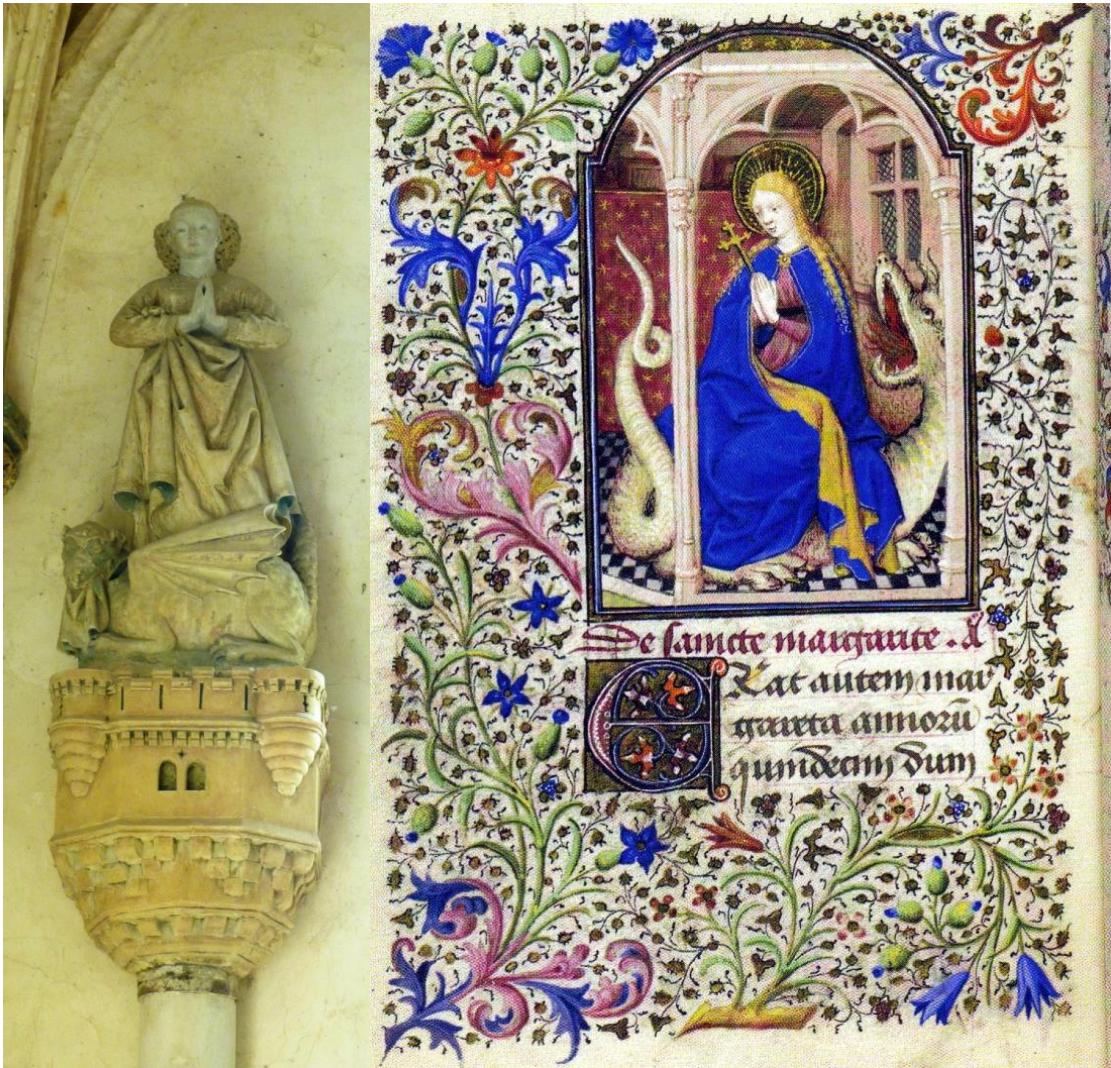 De sancte margarite . A
ERat autem mar
gareta annorū
quindecim dum